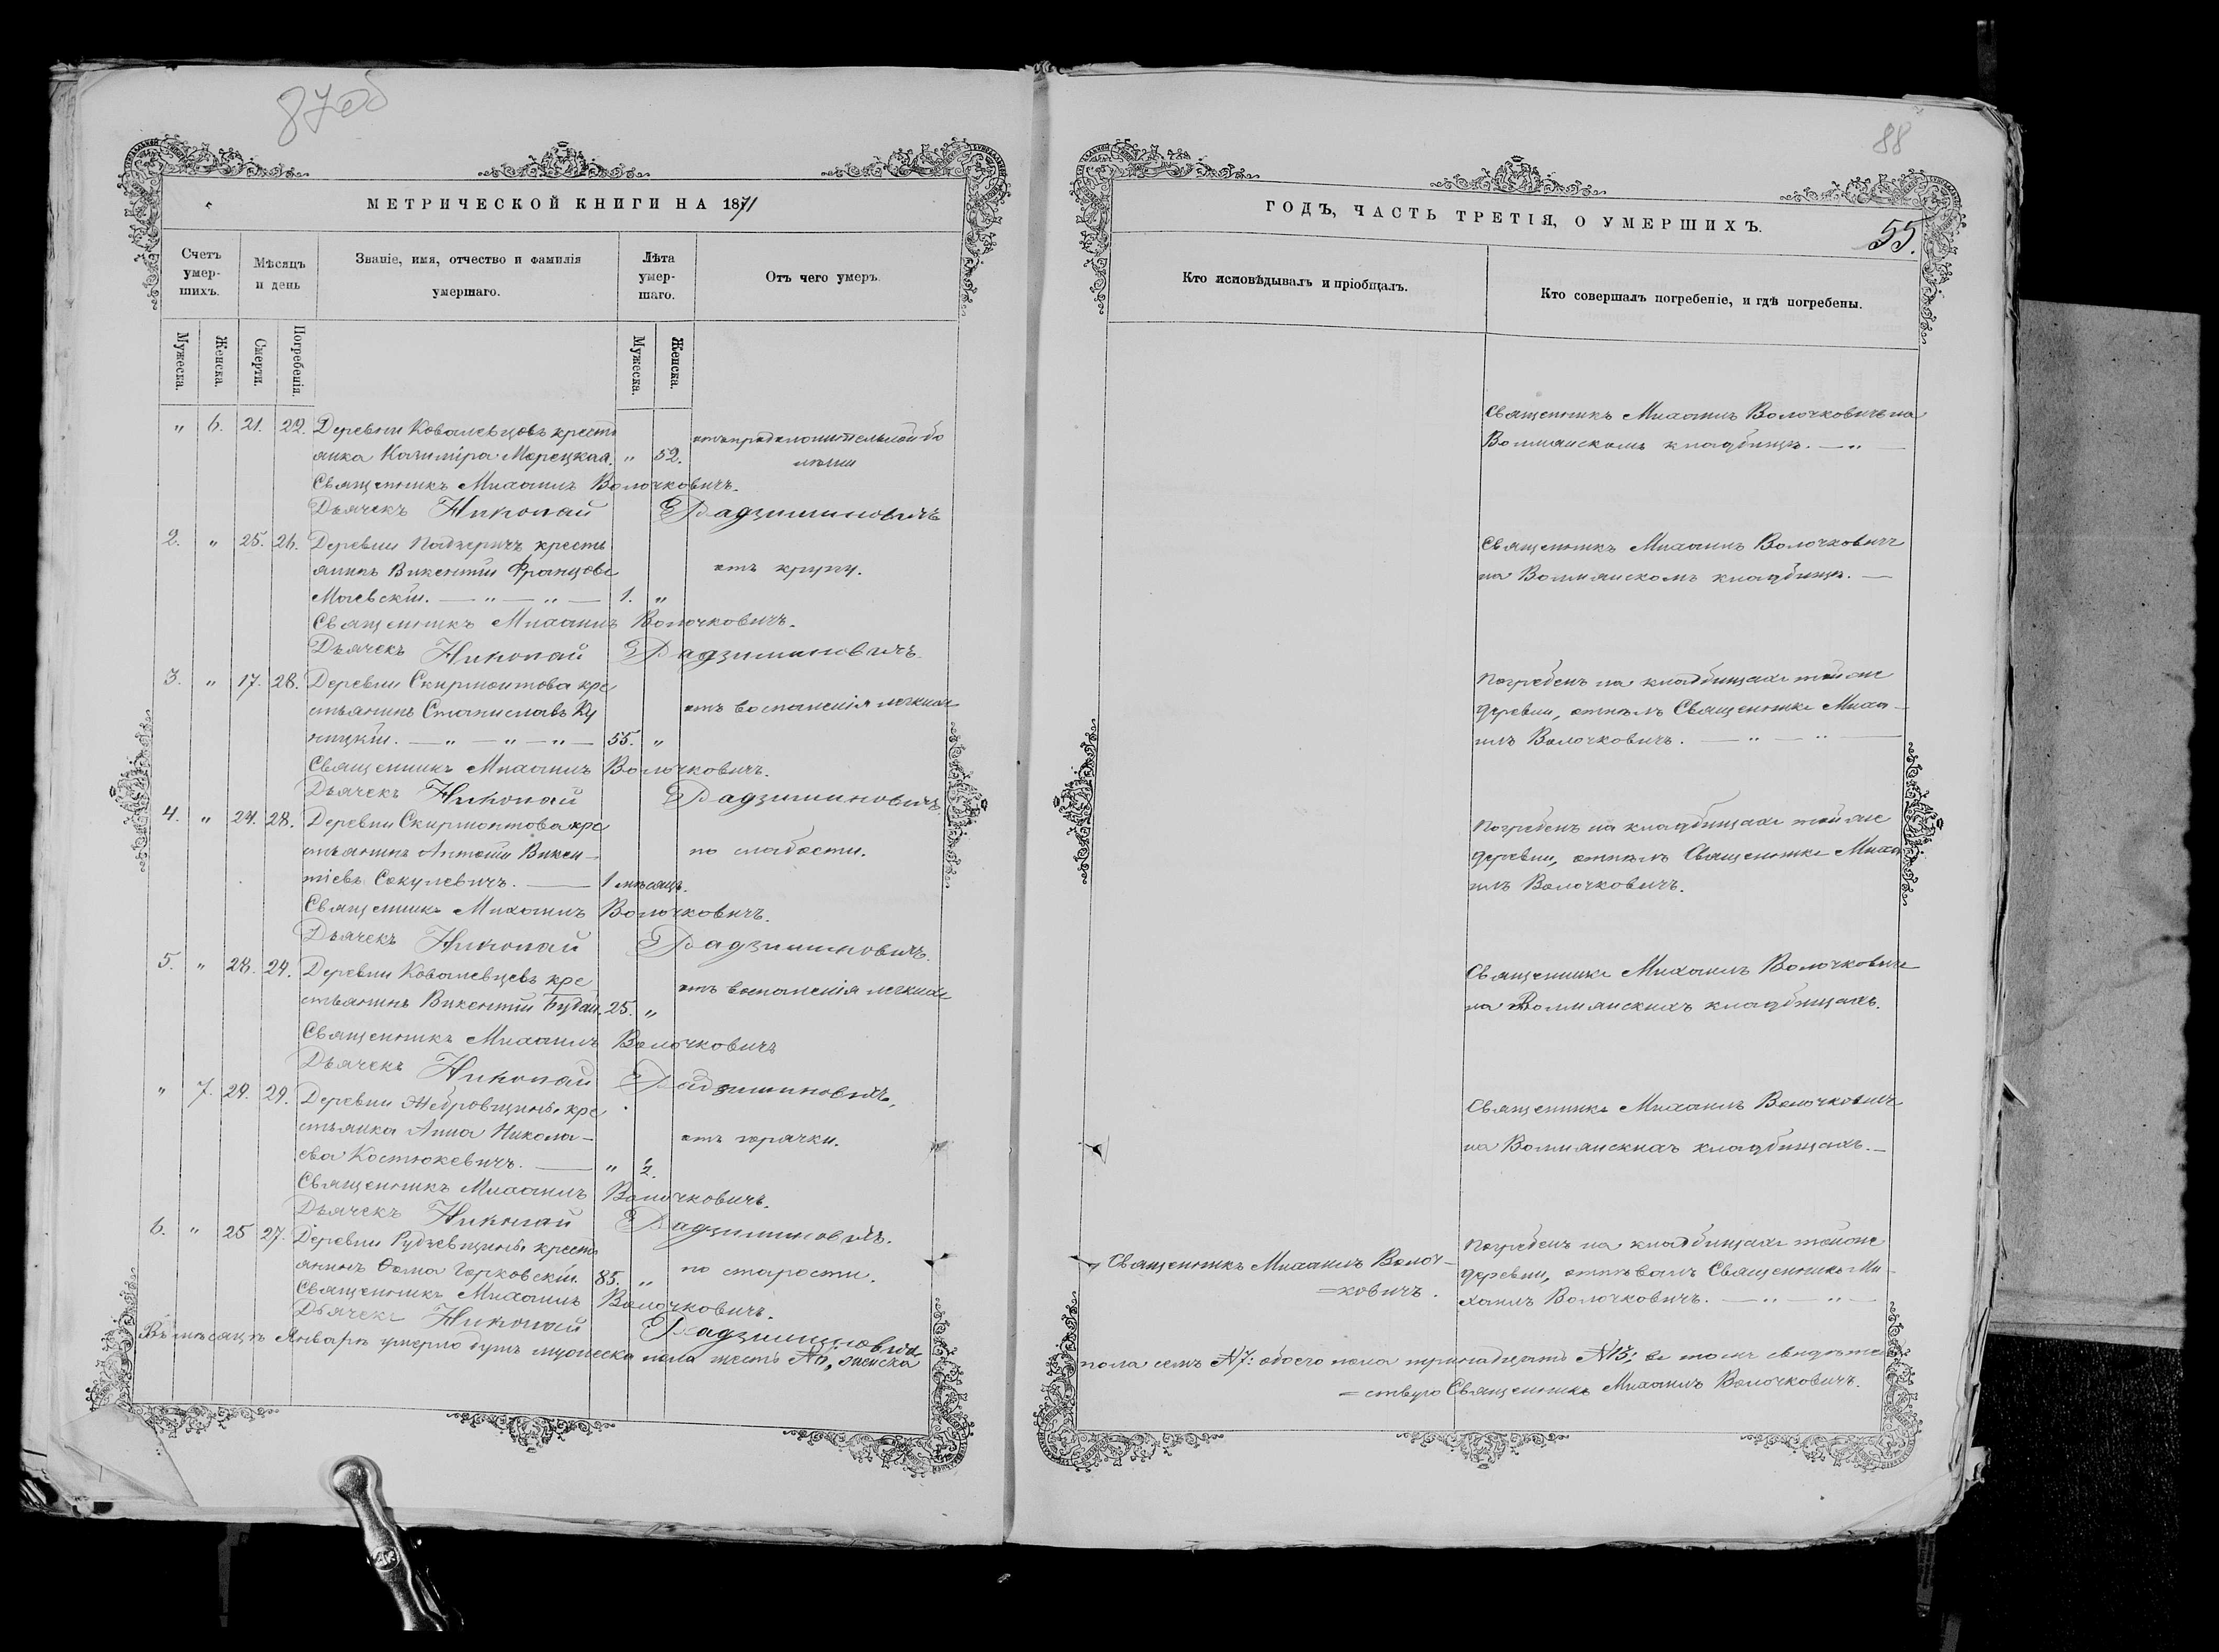 87об
МЕТРИЧЕСКОЙ КНИГИ НА 1871
Счетъ умер-шихъ.
Мѣсяцъ и день
Званіе, имя, отчество и фамилія умершаго.
Лѣта умер-шаго.
Отъ чего умеръ.
Мужеска.
Женска.
Смерти.
Погребенія.
Мужеска.
Женска.
" 6. 21. 22. Деревни Ковалевцовъ кресть
янка Казиміра Морецкая. " 52.
Священникъ Михаилъ Волочковичъ.
Дьячекъ Николай Радзиминовичъ
2. " 25. 26. Деревни кресть
янинъ Викентій Францовъ отъ крупу.
Маевскій. — " — " — 1. "
Священникъ Михаилъ Волочковичъ.
Дьячекъ Николай Радзиминовичъ
3. " 17. 28. Деревни Скирмонтова кре
стьянинъ Станиславъ отъ воспаленія легкихъ
— " — " — " — 55. "
Священникъ Михаилъ Волочковичъ.
Дьячекъ Николай Радзиминовичъ
4. " 24. 28. Деревни Скирмонтова кре
стьянинъ Антоній Викен- по слабости.
тіевъ Сакулевичъ. — 1 мѣсяцъ.
Священникъ Михаилъ Волочковичъ.
Дьячекъ Николай Радзиминовичъ.
5. " 28. 29. Деревни Ковалевцевъ кре
отъ воспаленія легкихъ
стьянинъ Викентій Будай. 25. "
Священникъ Михаилъ Волочковичъ
Дьячекъ Николай Радзиминовичъ.
" 7. 29. 29. Деревни Жебровщины кре
стьянка Анна Никола- отъ горячки.
ева Костюкевичъ. — " 2.
Священникъ Михаилъ Волочковичъ.
Дьячекъ Николай Радзиминовичъ.
6. " 25 27. Деревни крестъ
янинъ Ѳома Горковскій. 85. " по старости.
Священникъ Михаилъ Волочковичъ.
Дьячекъ Николай Радзиминовичъ
Въ мѣсяцѣ Январѣ умерло душъ мужеска пола шесть №6, женска
88
ГОДЪ, ЧАСТЬ ТРЕТІЯ, О УМЕРШИХЪ.
55.
Кто исповѣдывалъ и пріобщалъ.
Кто совершалъ погребеніе, и гдѣ погребены.
Священникъ Михаилъ Волочковичъ на
Волмянскомъ кладбищѣ. — " —
Священникъ Михаилъ Волочковичъ
на Волмянскомъ кладбищѣ. —
Погребенъ на кладбищахъ той же
деревни, отпѣлъ Священникъ Миха-
илъ Волочковичъ. — " — " —
Погребенъ на кладбищахъ той же
деревни, отпѣлъ Священникъ Миха
илъ Волочковичъ.
Священникъ Михаилъ Волочковичъ
на Волмянскихъ кладбищахъ.
Священникъ Михаилъ Волочковичъ
на Волмянскихъ кладбищахъ. —
Священникъ Михаилъ Волоч-
=ковичъ.
Погребенъ на кладбищахъ той же
деревни, отпѣвалъ Священникъ Ми-
хаилъ Волочковичъ. — " — " —
пола семь №7: обоего пола тринадцать №13; въ томъ свидѣтель
=ствую Священникъ Михаилъ Волочковичъ.